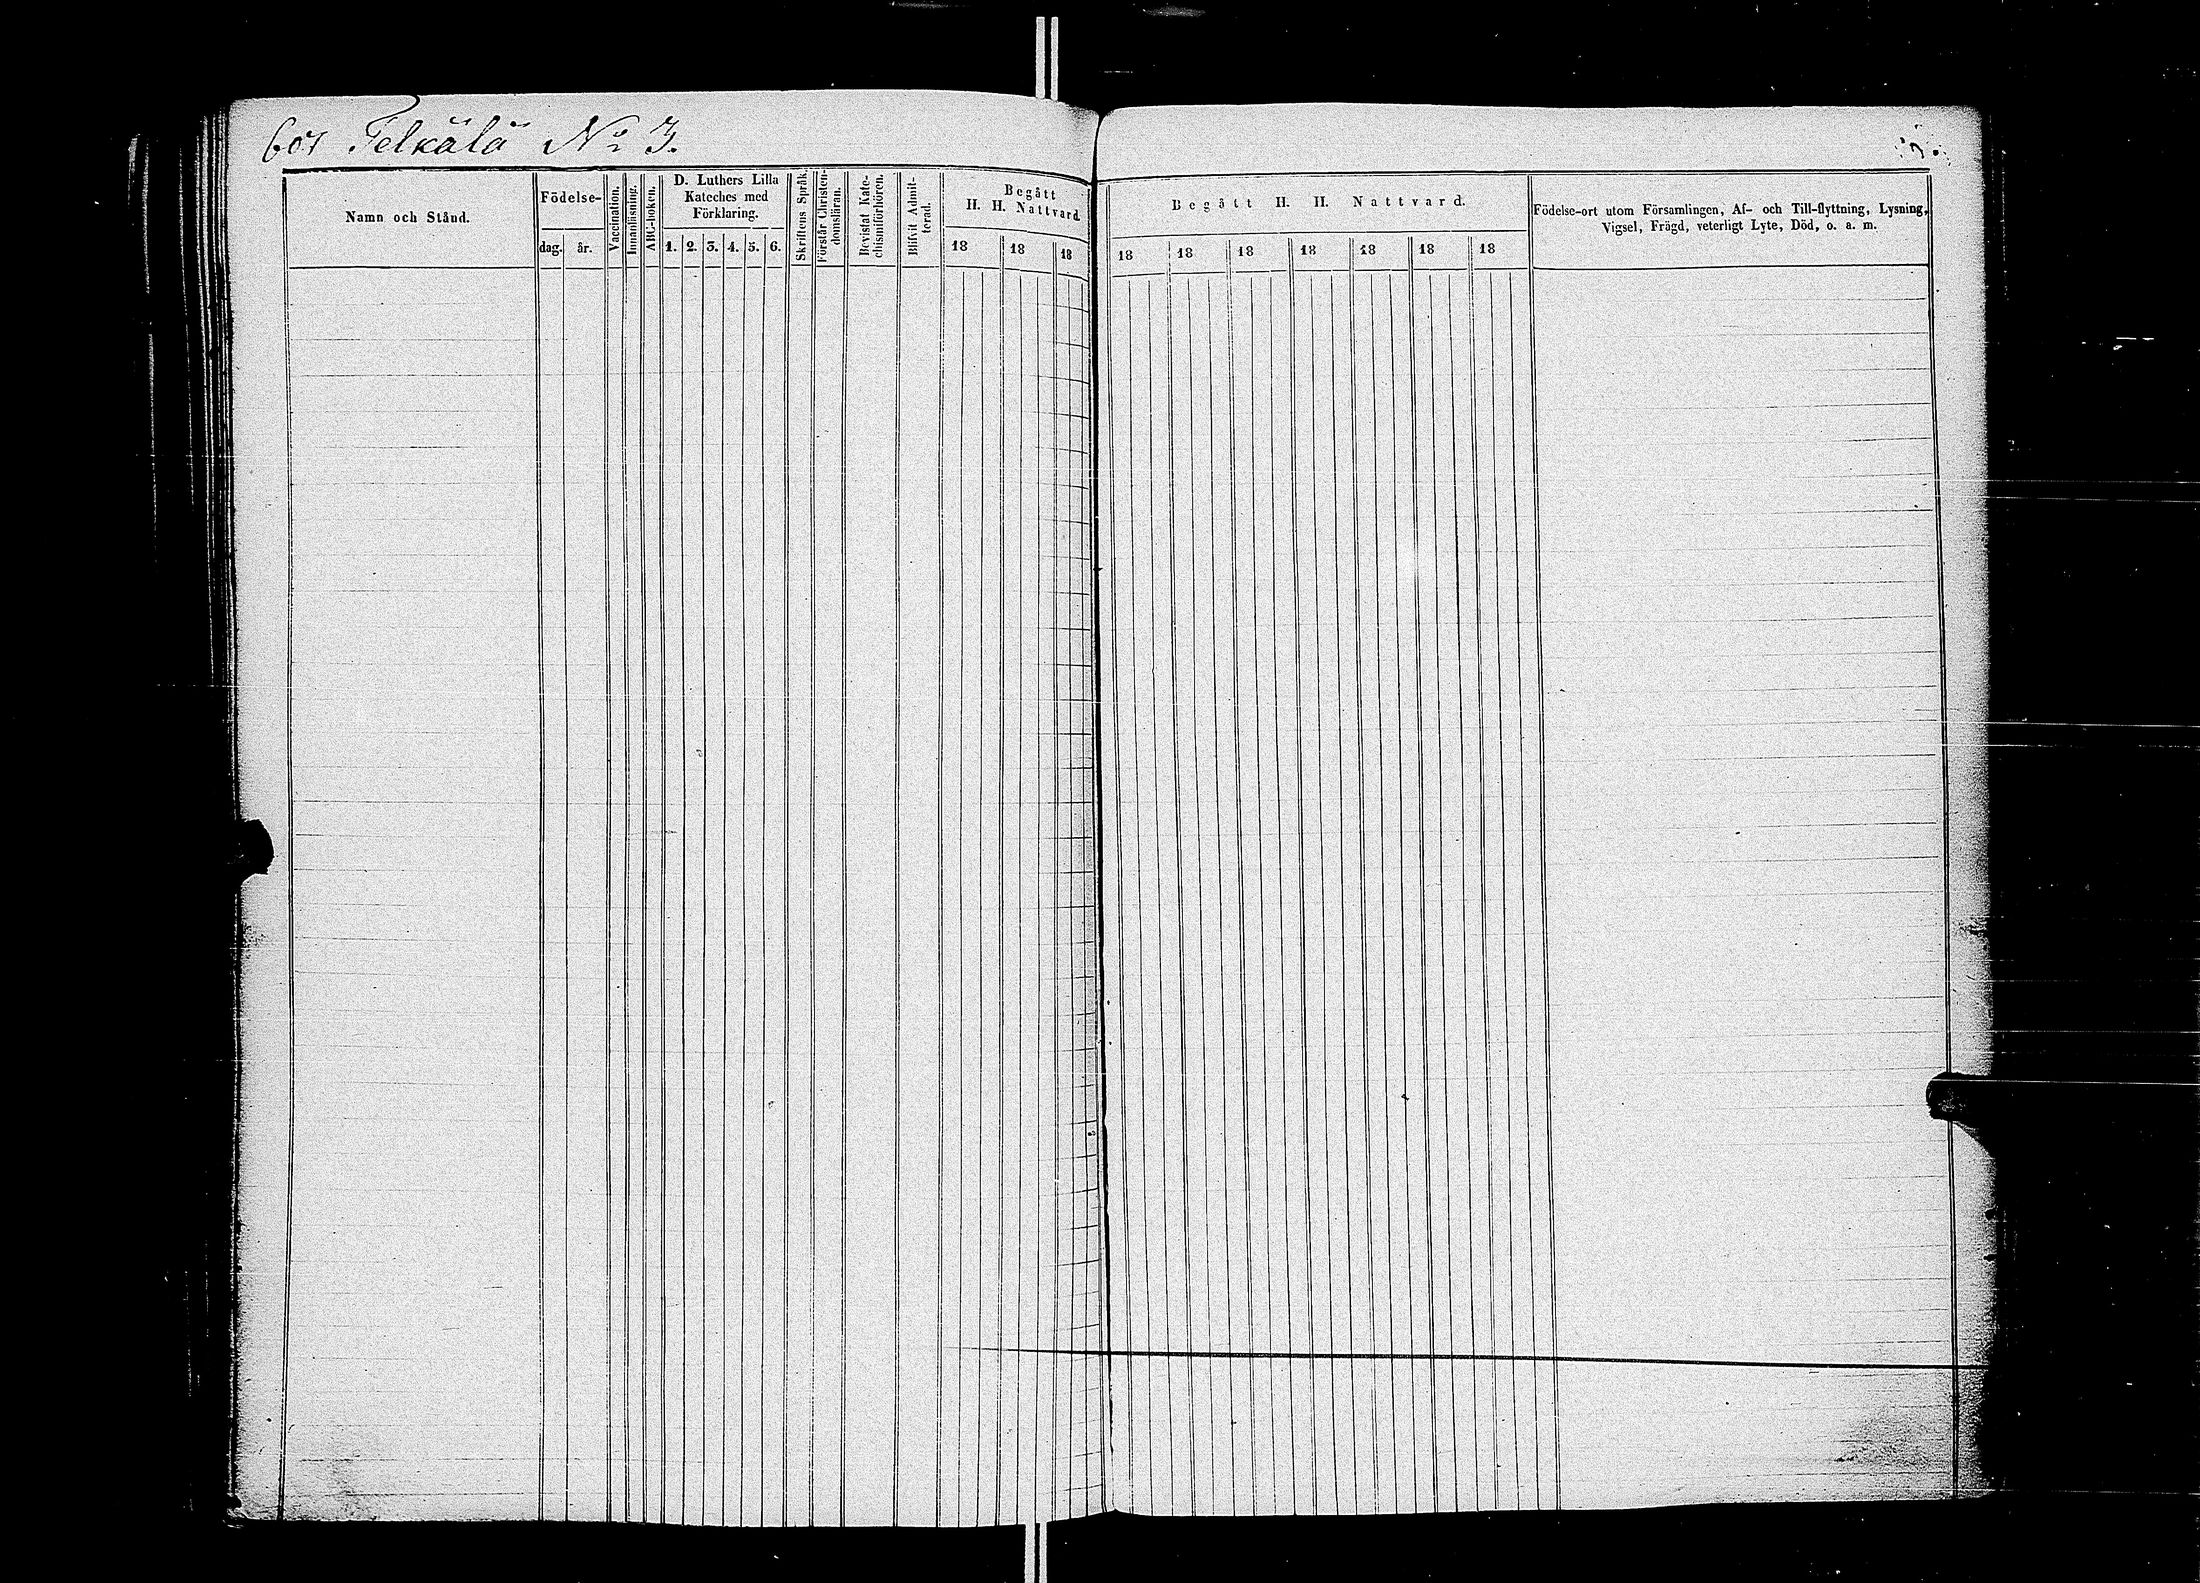 601 Telkälä No 3.
Namn och Stånd.
Födelse-
dag. år.
Vaccination.
Innanläsning.
ABC-boken.
D. Luthers Lilla
Kateches med
Förklaring.
1. 2. 3. 4. 5. 6.
Skriftens Språk.
Förstår Christen-
domsläran.
Bevistat Kate-
chismiförhören.
Blifvit Admit-
terad.
Begått
H. H. Nattvard.
18 18 18
Begått H. H. Nattvard.
18 18 18 18 18 18 18
Födelse-ort utom Församlingen, Af- och Till-flyttning, Lysning,
Vigsel, Frägd, veterligt Lyte, Död, o. a. m.